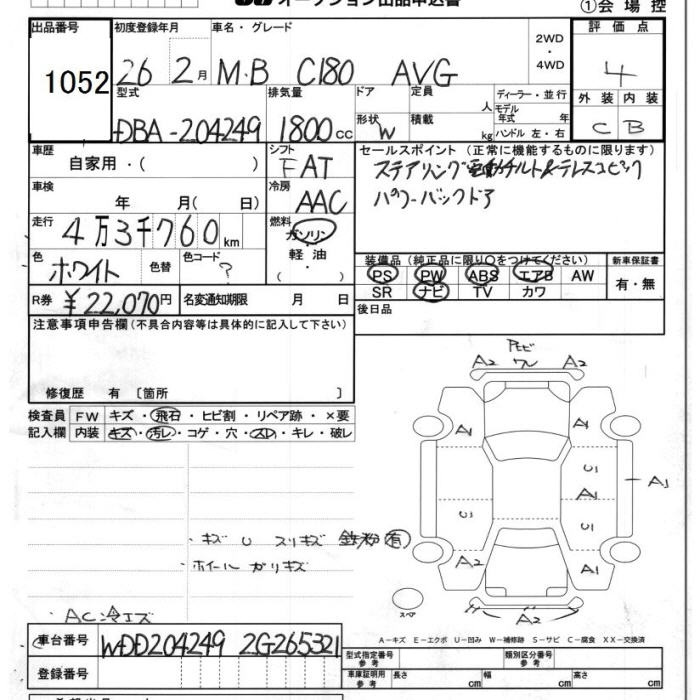 オークション出品申込書
①会場控
出品番号 初度登録年月 車名・グレード 評価点
1052 26 2月 M・B C180 AVG 2WD・4WD 4
型式 排気量 ドア 定員 人 ディーラー・並行 外装 内装
DBA-204249 1800cc 形状 W 積載 kg モデル年式 年 ハンドル 左・右 C B
車歴 自家用・( ) シフト FAT セールスポイント (正常に機能するものに限ります)
ステアリング電動チルト&テレスコピック
パワーバックドア
車検 年 月( 日) 冷房 AAC
走行 4万3千760km 燃料 ガソリン・軽油・( )
色 ホワイト 色替 色コード ?
装備品 (純正品に限り○をつけてください) 新車保証書
PS PW ABS エアB AW 有・無
SR ナビ TV カワ
R券 ¥22,070円 名変通知期限 月 日
後日品
注意事項申告欄 (不具合内容等は具体的に記入して下さい)
修復歴 有 〔箇所 〕
検査員 FW キズ・飛石・ヒビ割・リペア跡・×要
記入欄 内装 キズ・汚レ・コゲ・穴・スレ・キレ・破レ
・キズ U スリキズ 鉄粉有
・ホイール ガリキズ
AC冷エズ
A2 A2
A U A
U A A1
U
A2 A1
A2
スペア
A-キズ E-エクボ U-凹み W-補修跡 S-サビ C-腐食 XX-交換済
車台番号 WDD204249 2G265321
登録番号
型式指定番号 参考 類別区分番号 参考
車庫証明用 参考 長さ cm 幅 cm 高さ cm